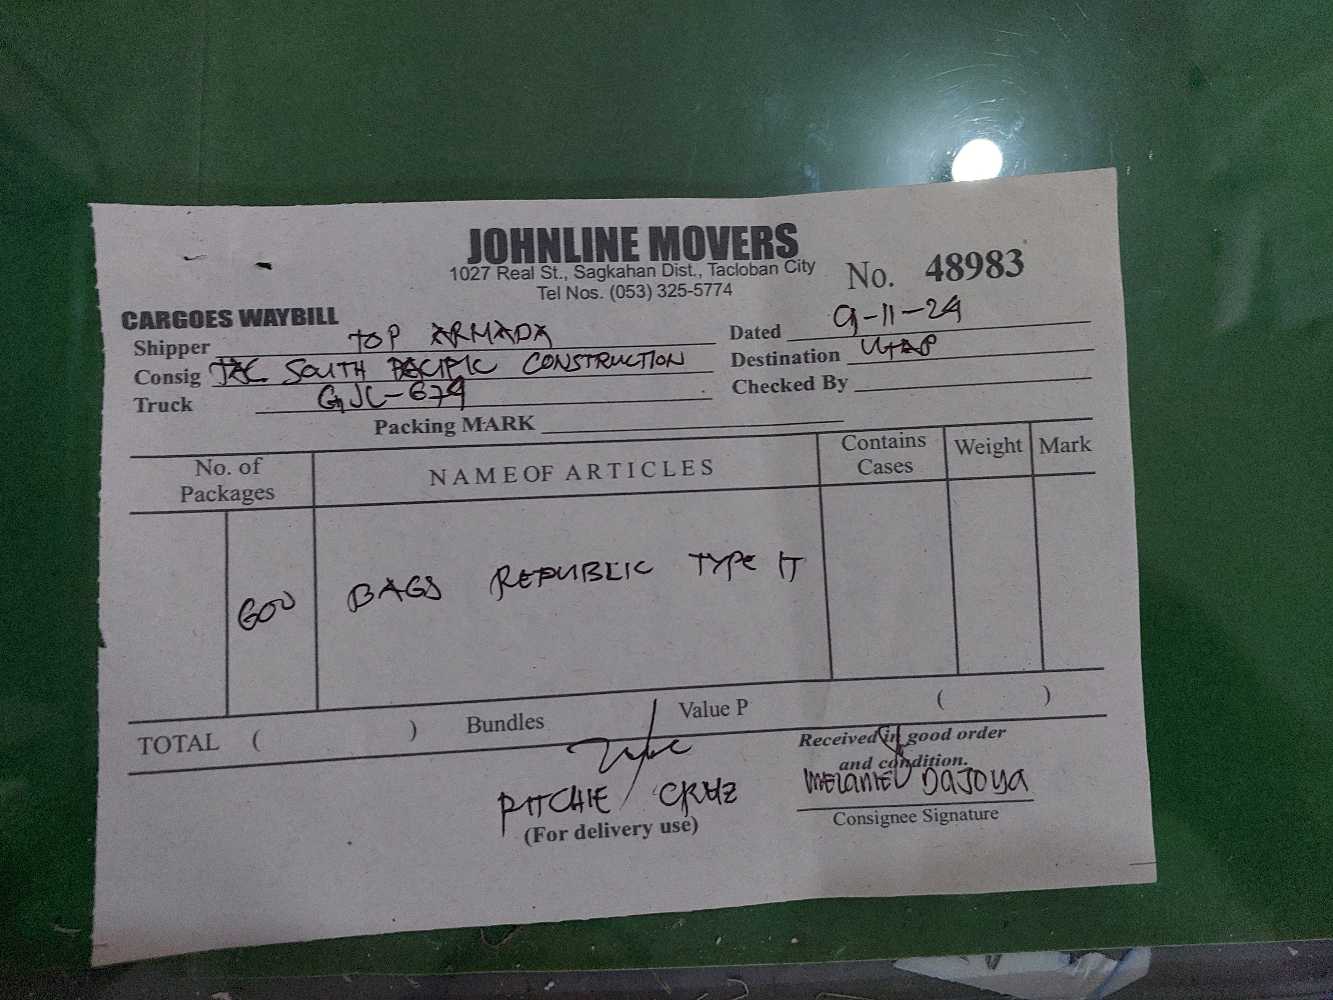 JOHNLINE MOVERS
1027 Real St., Sagkahan Dist., Tacloban City
Tel Nos. (053) 325-5774
No. 48983
CARGOES WAYBILL
Shipper TOP ARMADA
Dated 9-11-24
Consig SOUTH PACIFIC CONSTRUCTION
Destination UTAP
Truck GJL-679
Checked By
Packing MARK
No. of Packages NAME OF ARTICLES Contains Cases Weight Mark
600 BAGS REPUBLIC TYPE 1T
TOTAL ( ) Bundles Value P ( )
Received in good order
and condition.
RITCHIE CRUZ
MELANIE DAJOYA
(For delivery use)
Consignee Signature